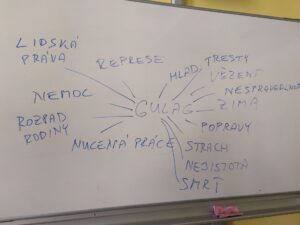 LIDSKÁ
PRÁVA
REPRESE
HLAD
TRESTY
VĚZENÍ
NESPRAVEDLNOST
ZIMA
NEMOC
GULAG
ROZPAD
RODINY
NUCENÁ PRÁCE
POPRAVY
STRACH
NEJISTOTA
SMRT